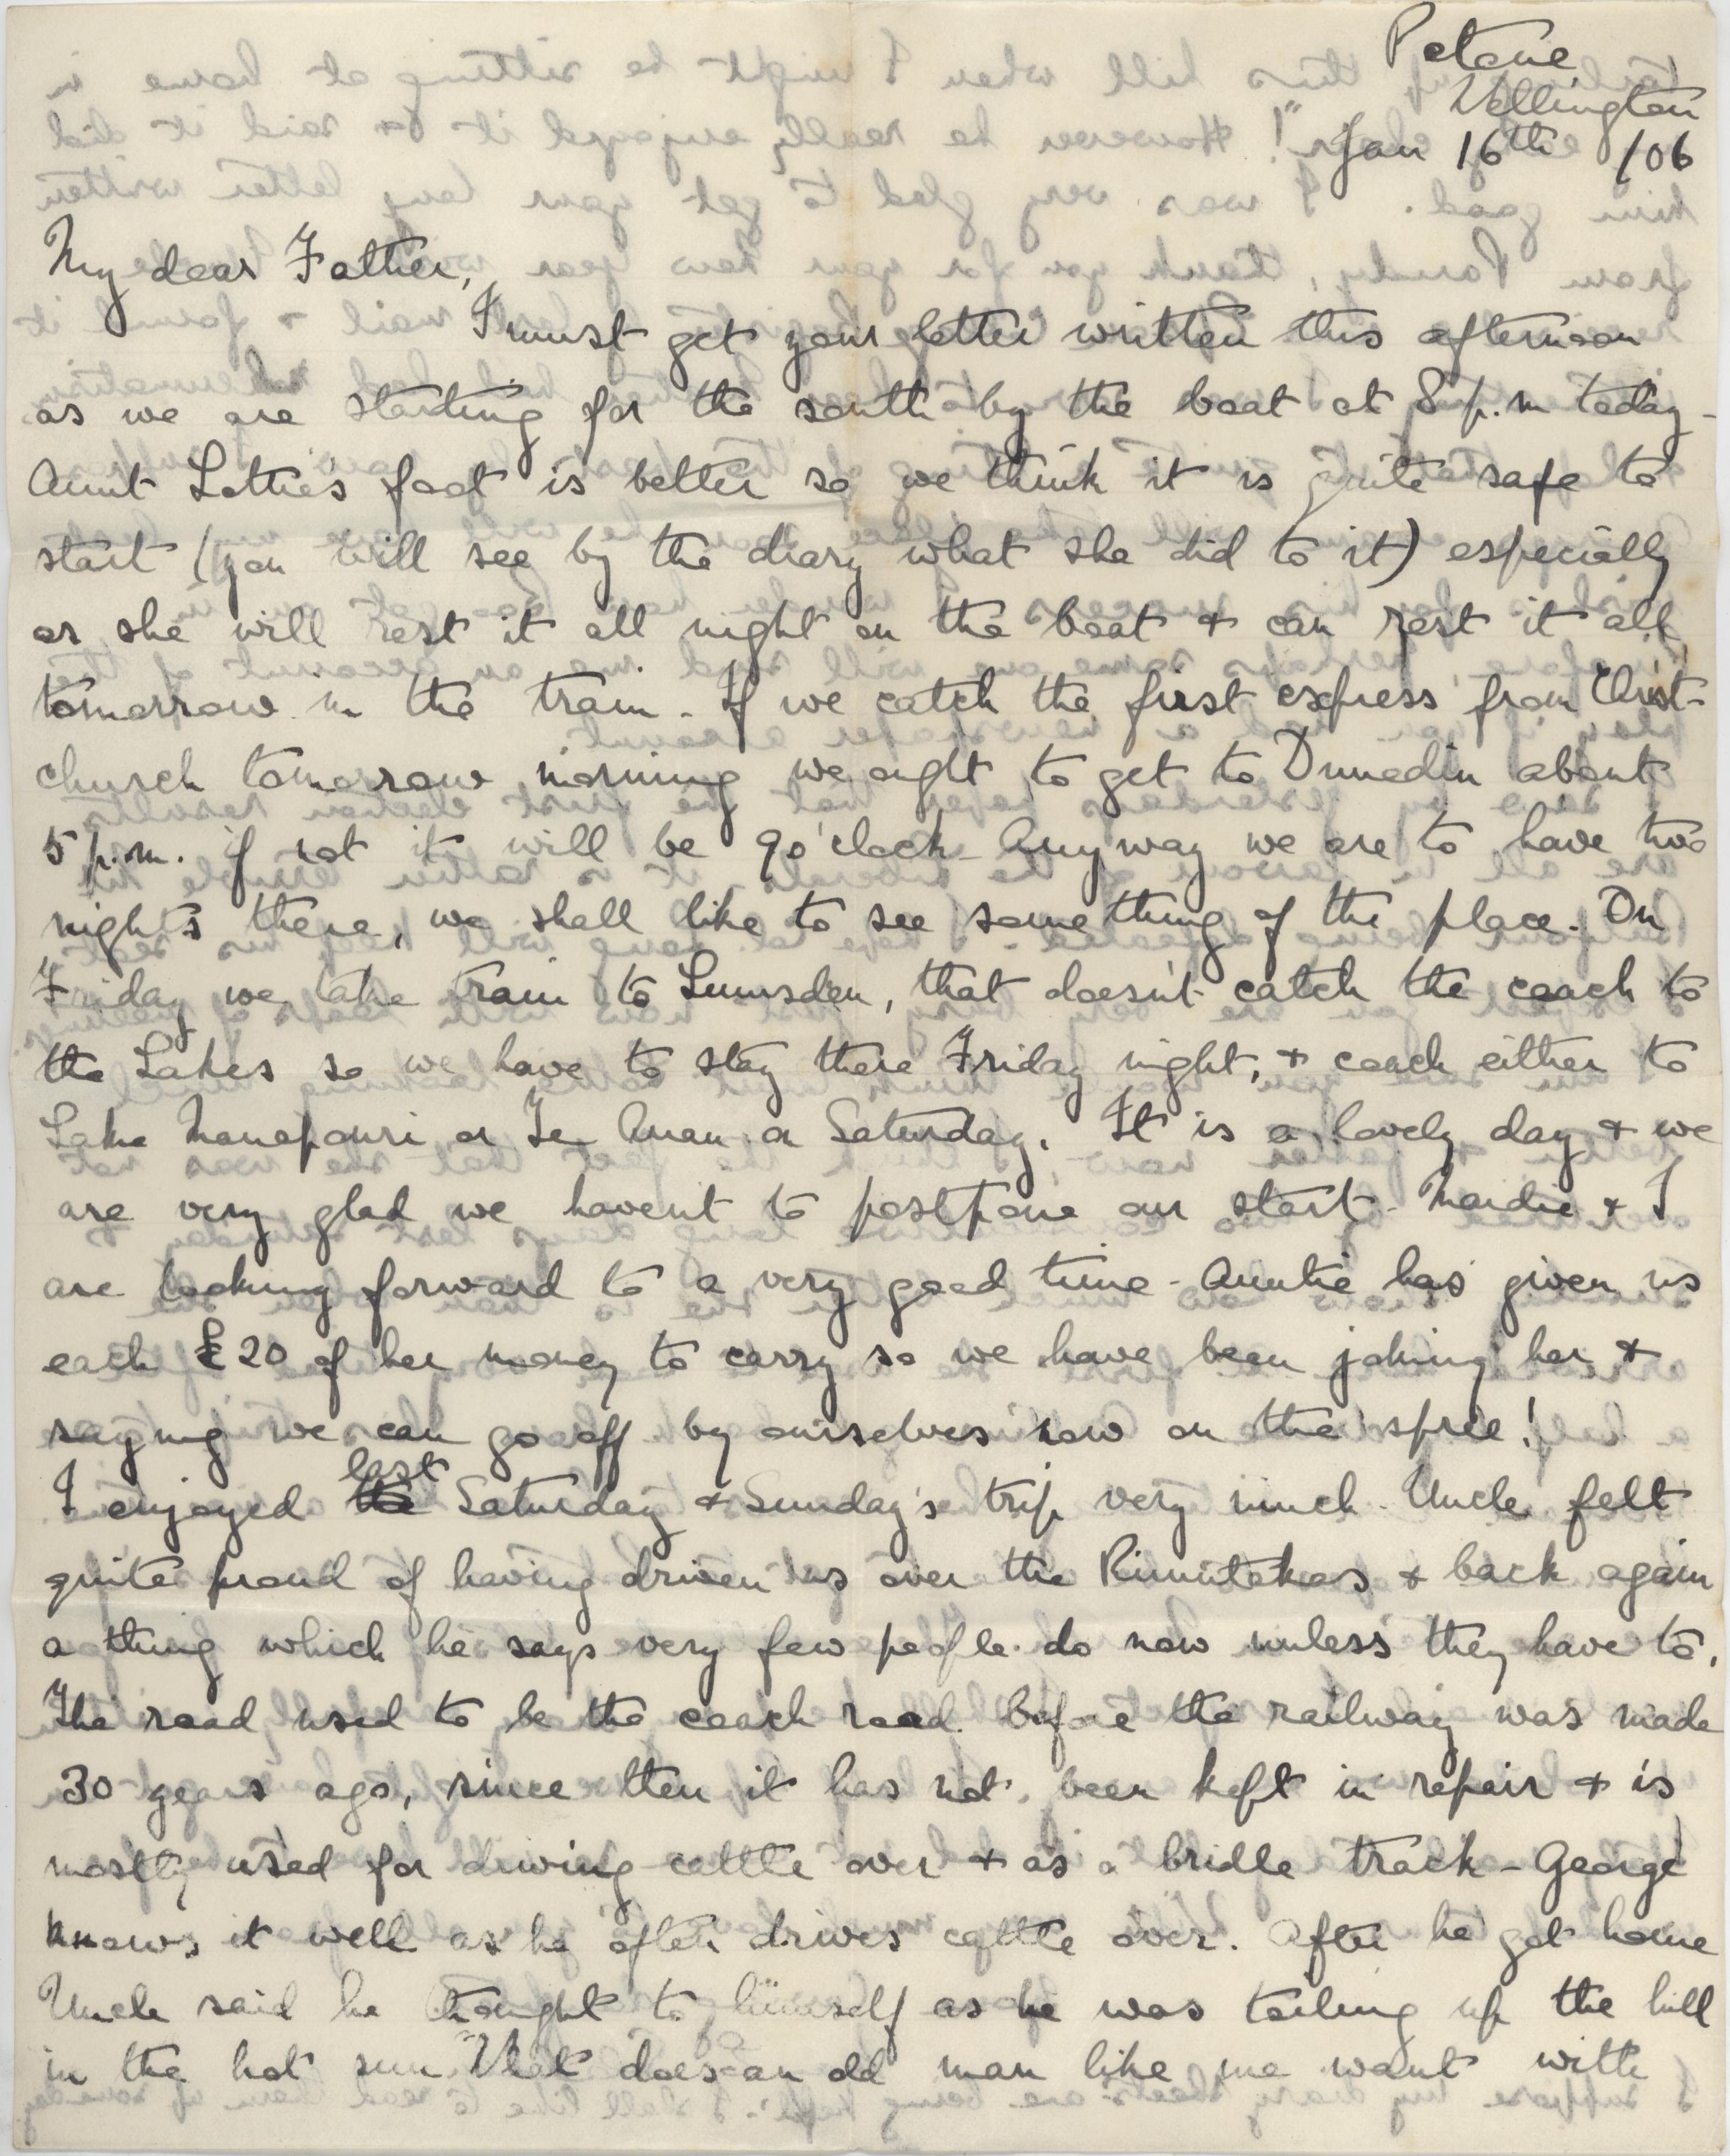 Petone,
Wellington
Jan 16th /06
My dear Father,
I must get your letter written this afternoon
as we are starting for the south by the boat at 8 p.m today -
Aunt Lottie's foot is better so we think it is quite safe to
start (you will see by the diary what she did to it) especially
as she will rest it all night on the boat & can rest it all
tomorrow in the train - If we catch the first express from Christ-
church tomorrow morning we ought to get to Dunedin about
5 p.m. if not it will be 9 o'clock - Anyway we are to have two
nights there, we shall like to see something of the place. On
Friday we take train to Lumsden, that doesn't catch the coach to
the Lakes so we have to stay there Friday night, & coach either to
Lake Manapouri or Te Anau on Saturday. It is a lovely day & we
are very glad we haven't to postpone our start - Maidie & I
are looking forward to a very good time - Auntie has given us
each £20 of her money to carry so we have been joking her &
saying we can go off by ourselves now on the spree!
I enjoyed the last Saturday & Sunday's trip very much. Uncle felt
quite proud of having driven us over the Rimutakas & back again
a thing which he says very few people do now unless they have to.
The road used to be the coach road before the railway was made
30 years ago, since then it has not been kept in repair & is
mostly used for driving cattle over & as a bridle track - George
knows it well as he often drives cattle over. After he got home
Uncle said he thought to himself as he was toiling up the hill
in the hot sun "What does an old man like me want with